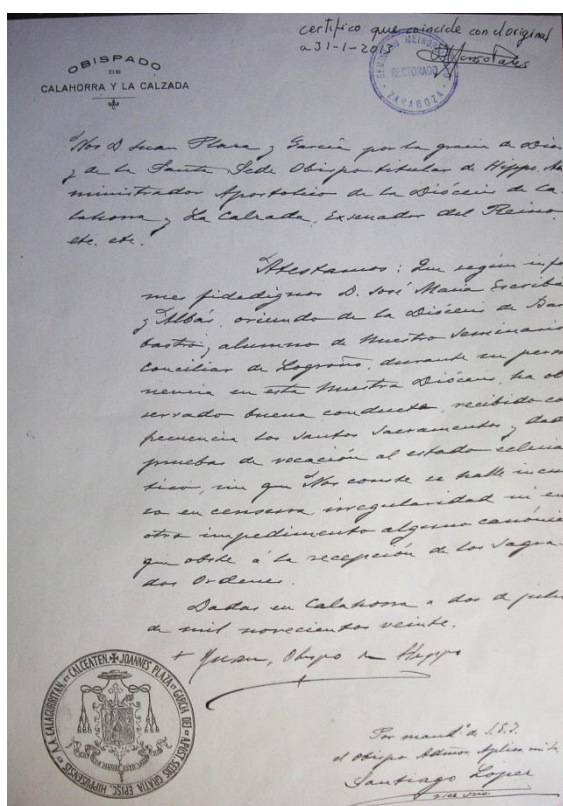 certifico que coincide con el original
a 31-1-2013
SEMINARIO METROPOLITANO
RECTORADO
ZARAGOZA
OBISPADO
DE
CALAHORRA Y LA CALZADA
Nos D Juan Plaza y García por la gracia de Dios
y de la Santa Sede Obispo titular de Hippo, Ad
ministrador Apostolico de la Diócesis de Ca
lahorra y La Calzada, Exsenador del Reino,
etc. etc.
Atestamos: Que según infor
mes fidedignos D. José María Escribá
y Albás, oriundo de la Diócesis de Bar
bastro, alumno de Nuestro Seminario
Conciliar de Logroño, durante su perma
nencia en esta Nuestra Diócesis, ha ob
servado buena conducta, recibido con
frecuencia los Santos Sacramentos y dado
pruebas de vocación al estado eclesiás
tico, sin que Nos conste se halle incur
so en censura, irregularidad ni en
otro impedimento alguno canónico
que obste á la recepción de los Sagra
dos Ordenes.
Dadas en Calahorra a dos de julio
de mil novecientos veinte.
+ Juan, Obispo de Hippo
JOANNES PLAZA ET GARCIA DEI ET APOST. SEDIS GRATIA EPISC. HIPPUSENSIS ET A.A. CALAGURRITAN. ET CALCEATEN.
Por mandº de S.S.I.
el Obispo Admor. Aplico mi Sr
Santiago López